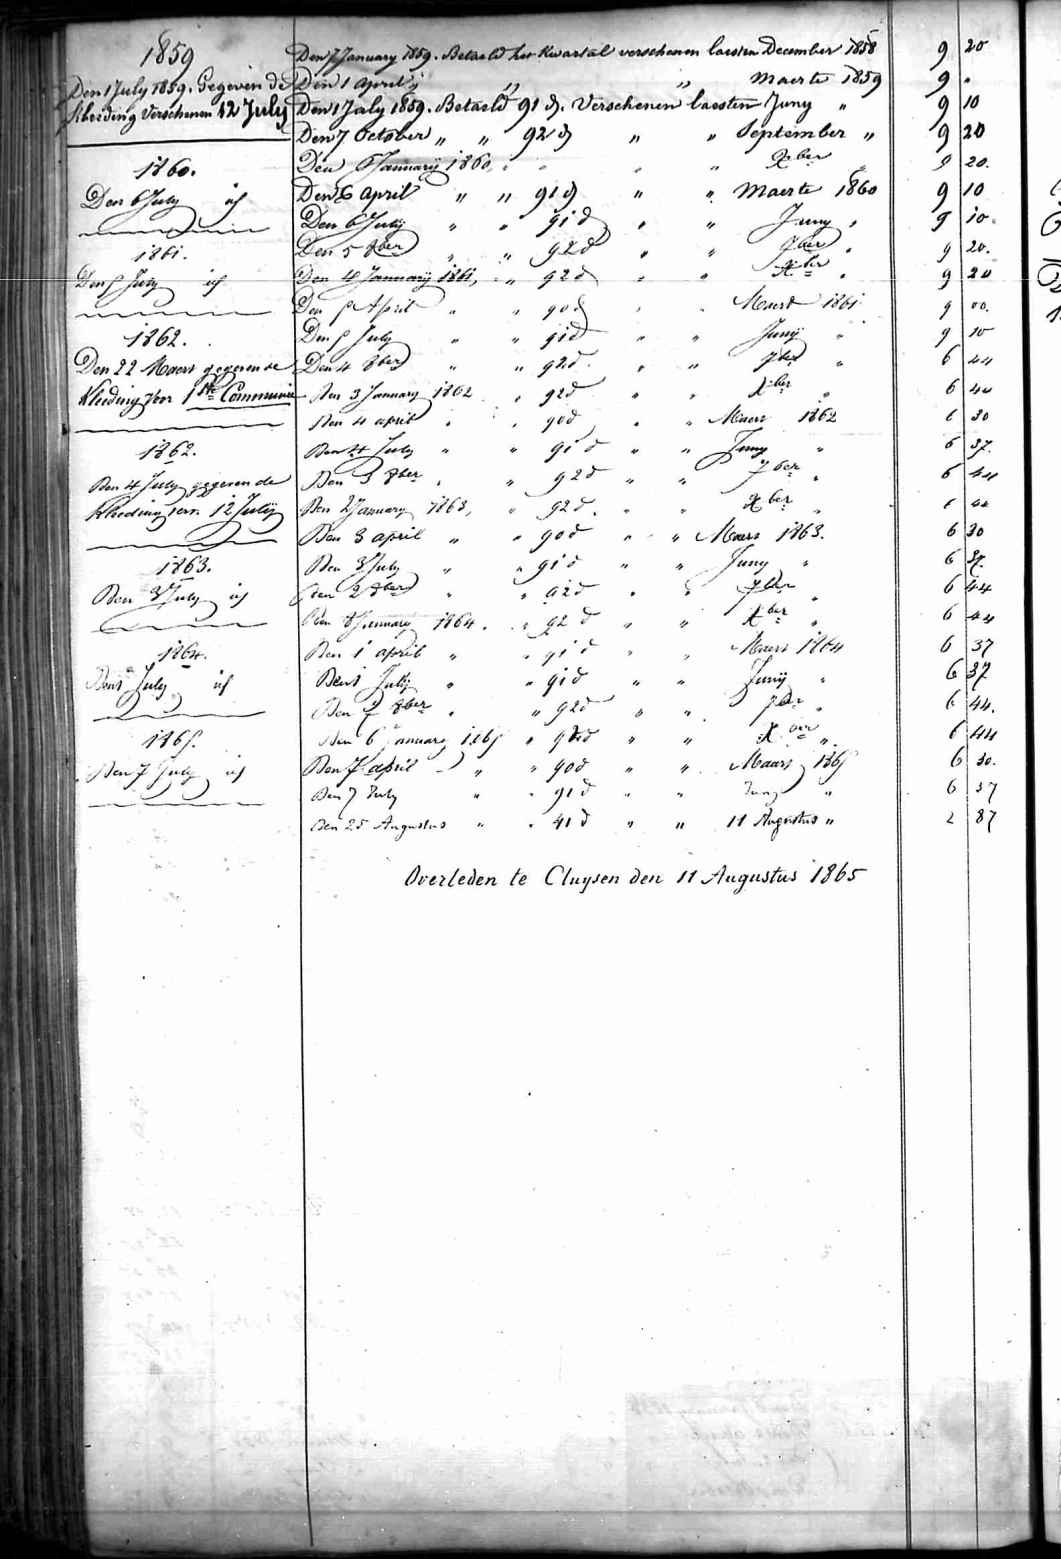 1859
Den 1 July 1859. Gegeven de
kleeding Verschenen 12 July
1860.
Den 6 July id
1861.
Den 5 July id
1862.
Den 22 Maert gegeven de
kleeding voor 1ste Communie
1862.
Den 4 July gegeven de
kleeding verv. 12 July
1863.
Den 3 July id
1864.
Den 1 July id
1865.
Den 7 July id
Den 7 January 1859. Betaeld het Kwartal verschenen laesten December 1858 9 20
Den 1 April " " Maerte 1859 9 "
Den 1 July 1859. Betaeld 91 d. Verschenen laesten Juny " 9 10
Den 7 October " " 92 d " " September " 9 20
Den 6 January 1860, " " " " Xber " 9 20.
Den 6 April " " 91 d " " Maerte 1860 9 10
Den 6 July " " 91 d " " Juny " 9 10
Den 5 8ber " " 92 d " " 7ber " 9 20.
Den 4 January 1861, " " 92 d " " Xber " 9 20
Den 5 April " " 90 d " " Maert 1861 9 00.
Den 5 July " " 91 d " " Juny " 9 10
Den 4 8ber " " 92 d. " " 7ber " 6 44
Den 3 January 1862 " 92 d " " Xber " 6 44
Den 4 april " " 90 d " " Maert 1862 6 30
Den 4 July " " 91 d " " Juny " 6 37.
Den 3 8ber " " 92 d " " 7ber " 6 44
Den 2 January 1863, " 92 d. " " Xber " 6 44
Den 3 april " " 90 d " " Maert 1863. 6 30
Den 3 July " " 91 d " " Juny " 6 37.
Den 2 8ber " " 92 d " " 7ber " 6 44
Den 8 January 1864. " 92 d " " Xber " 6 44
Den 1 april " " 91 d " " Maert 1864 6 37
Den 1 July " " 91 d " " Juny " 6 37
Den 7 8ber " " 92 d " " 7ber " 6 44.
Den 6 January 1865 " 92 d " " Xber " 6 44
Den 7 april " " 90 d " " Maart 1865 6 30.
Den 7 July " " 91 d " " Juny " 6 37
Den 25 Augustus " " 41 d " " 11 Augustus " 2 87
Overleden te Cluysen den 11 Augustus 1865